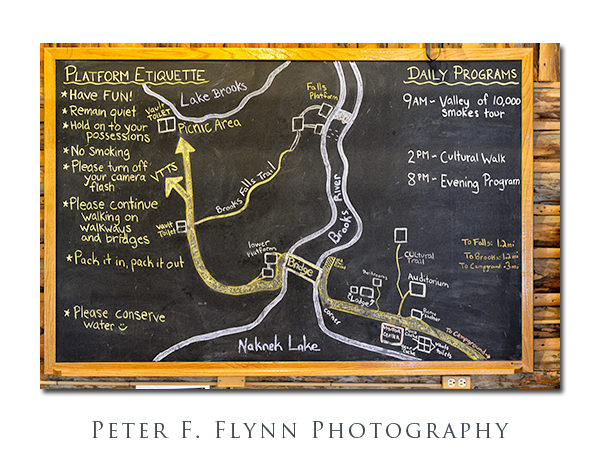 PLATFORM ETIQUETTE
* HAVE FUN!
* Remain quiet
* Hold on to your
possessions
* No smoking
* Please turn off
your camera
flash
* Please continue
walking on
walkways
and bridges
* Pack it in, pack it out
* Please conserve
water
Lake Brooks
Vault
Toilet
Picnic Area
VTTS
Brooks Falls Trail
Vault
Toilet
Falls
Platform
Brooks River
lower
Platform
Bridge
Corner
Naknek Lake
Lodge
CULTURAL
TRAIL
Auditorium
VISITOR
CENTER
Vault
Toilets
To Campground
DAILY PROGRAMS
9AM - Valley of 10,000
smokes tour
2PM - Cultural Walk
8PM - Evening Program
To Falls: 1.2mi
To Brooks: 1.2mi
To Campground .3mi
PETER F. FLYNN PHOTOGRAPHY